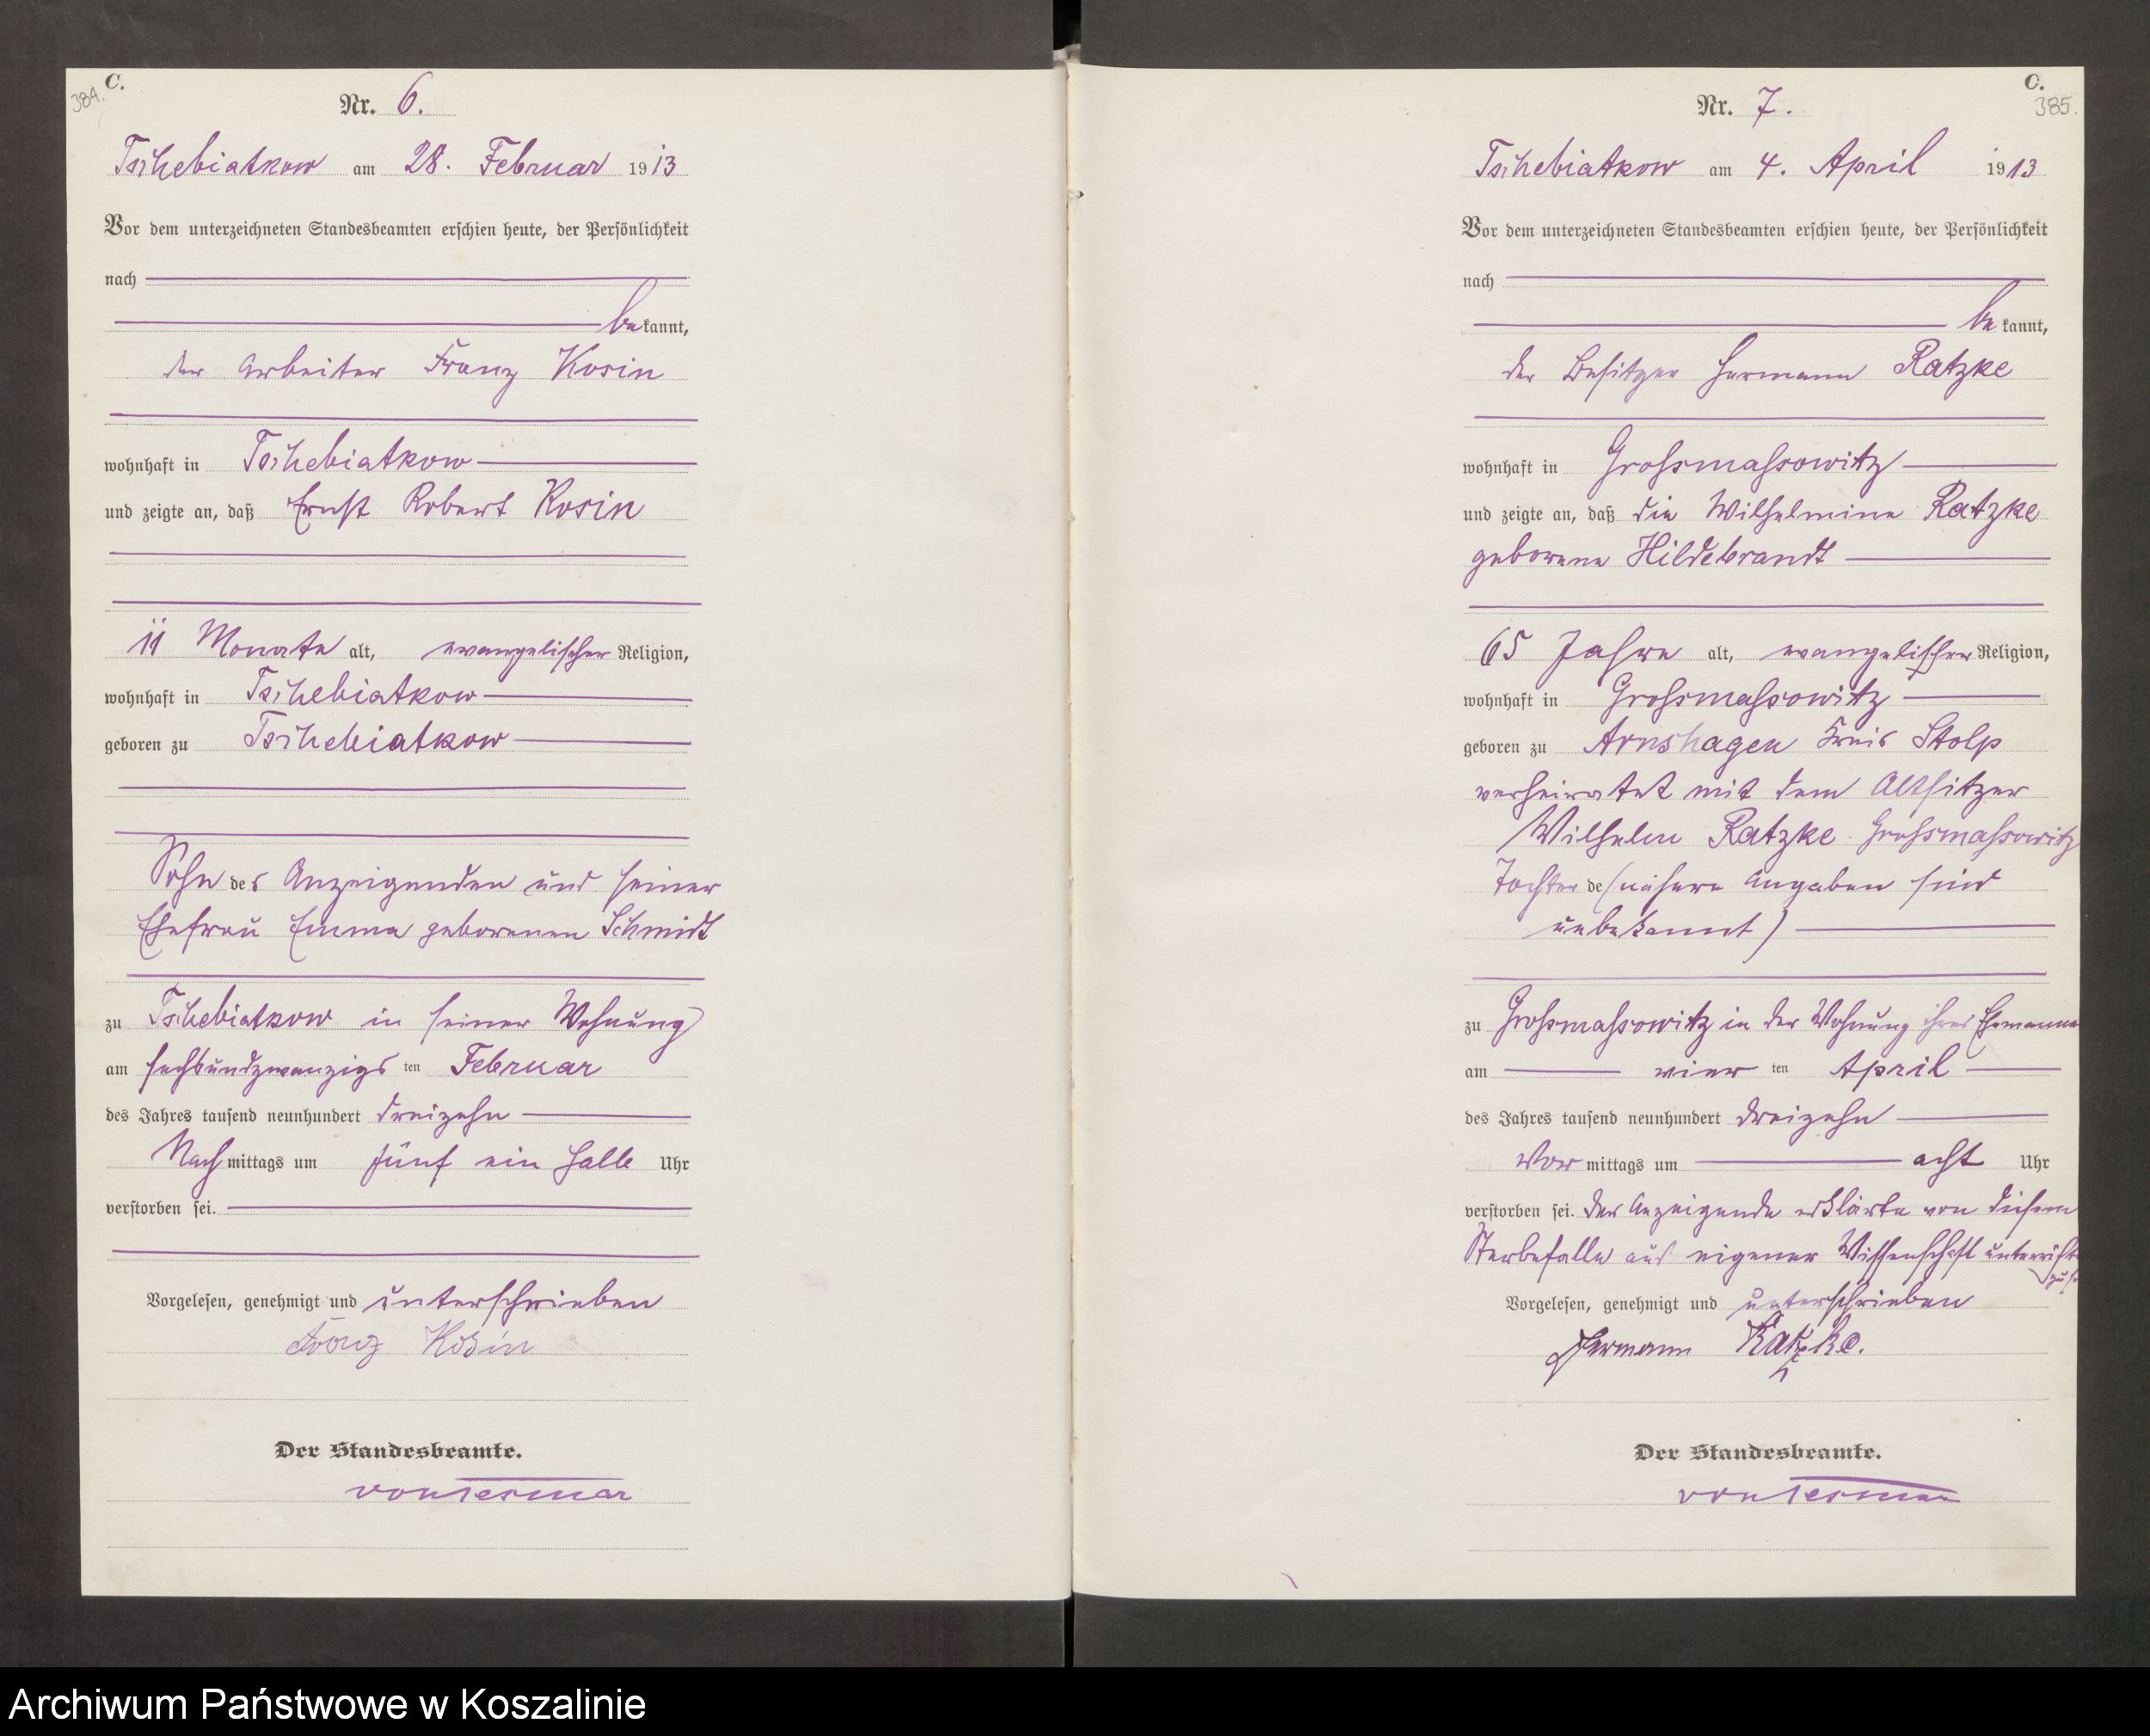 384.
C.
Nr. 6.
Tschebiatkow am 28. Februar 1913
Vor dem unterzeichneten Standesbeamten erschien heute, der Persönlichkeit
nach
bekannt,
der Arbeiter Franz Kosin
wohnhaft in Tschebiatkow
und zeigte an, daß Ernst Robert Kosin
11 Monate alt, evangelischer Religion,
wohnhaft in Tschebiatkow
geboren zu Tschebiatkow
Sohn des Anzeigenden und seiner
Ehefrau Emma geborenen Schmidt
zu Tschebiatkow in seiner Wohnung
am sechsundzwanzigs ten Februar
des Jahres tausend neunhundert dreizehn
Nachmittags um fünf ein halb Uhr
verstorben sei.
Vorgelesen, genehmigt und unterschrieben
Franz Kosin
Der Standesbeamte.
von Tesmar
C.
385.
Nr. 7.
Tschebiatkow am 4. April 1913
Vor dem unterzeichneten Standesbeamten erschien heute, der Persönlichkeit
nach
bekannt,
der Besitzer Hermann Ratzke
wohnhaft in Grossmassowitz
und zeigte an, daß die Wilhelmine Ratzke
geborene Hildebrandt
65 Jahre alt, evangelischer Religion,
wohnhaft in Grossmassowitz
geboren zu Arnshagen Kreis Stolp
verheiratet mit dem Altsitzer
Wilhelm Ratzke Grossmassowitz
Tochter de (nähere Angaben sind
unbekannt)
zu Grossmassowitz in der Wohnung ihres Ehemannes
am vier ten April
des Jahres tausend neunhundert dreizehn
Vormittags um acht Uhr
verstorben sei. Der Anzeigende erklärte von diesem
Sterbefalle aus eigener Wissenschaft unterricht
zu
Vorgelesen, genehmigt und unterschrieben
Hermann Ratzke.
Der Standesbeamte.
von Tesmar
Archiwum Państwowe w Koszalinie